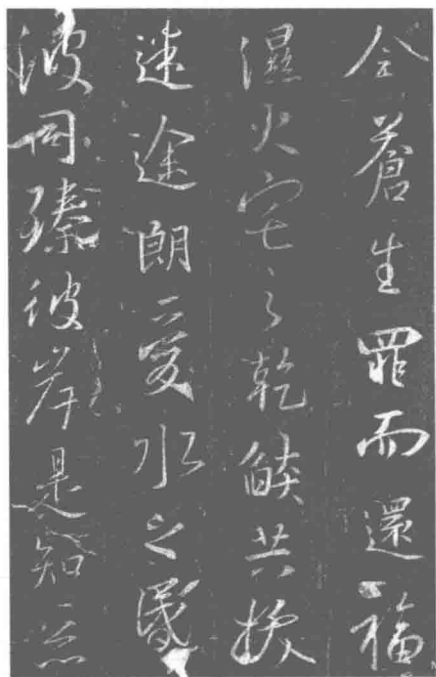 令蒼生罪而還福
濕火宅之乾燄共拔
迷途朗愛水之昬
波同臻彼岸是知惡